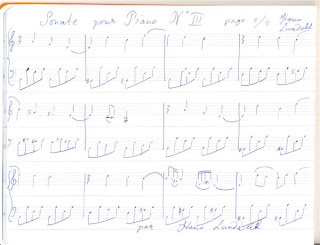 Sonate pour Piano N° III page 3/4 Hans
Lundahl
par Hans Lundahl